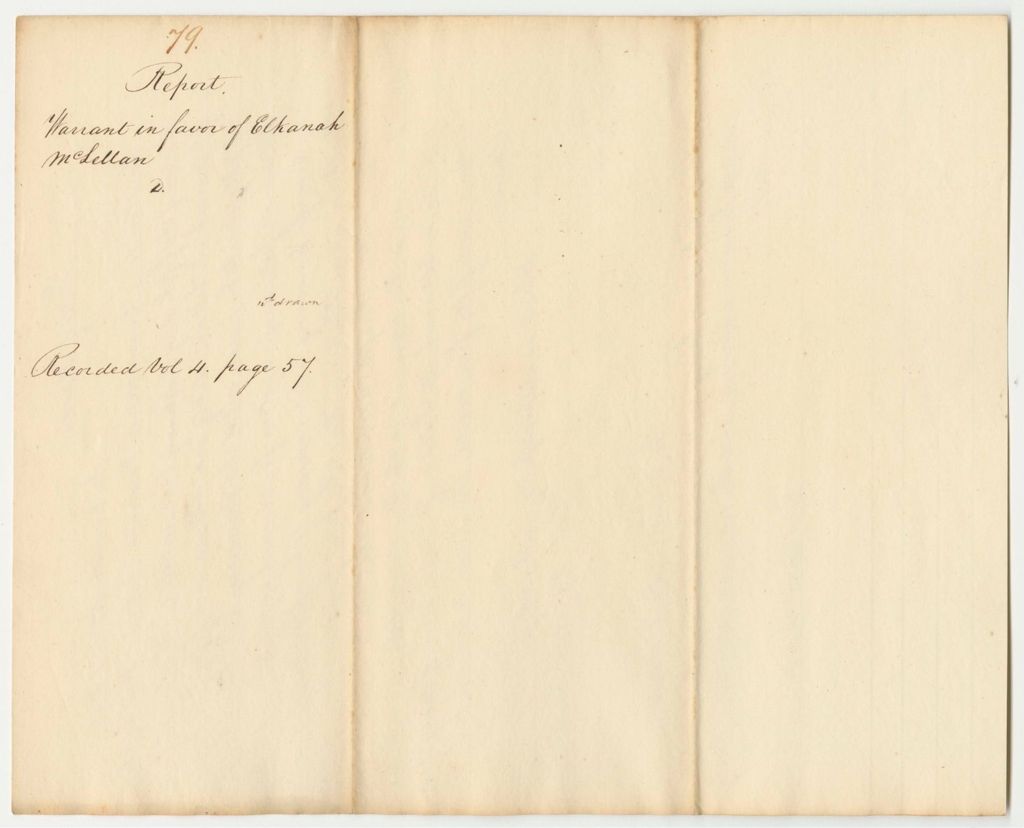 79.
Report.
Warrant in favor of Elkanah
McLellan
D.
wt drawn
Recorded Vol 4. page 57.